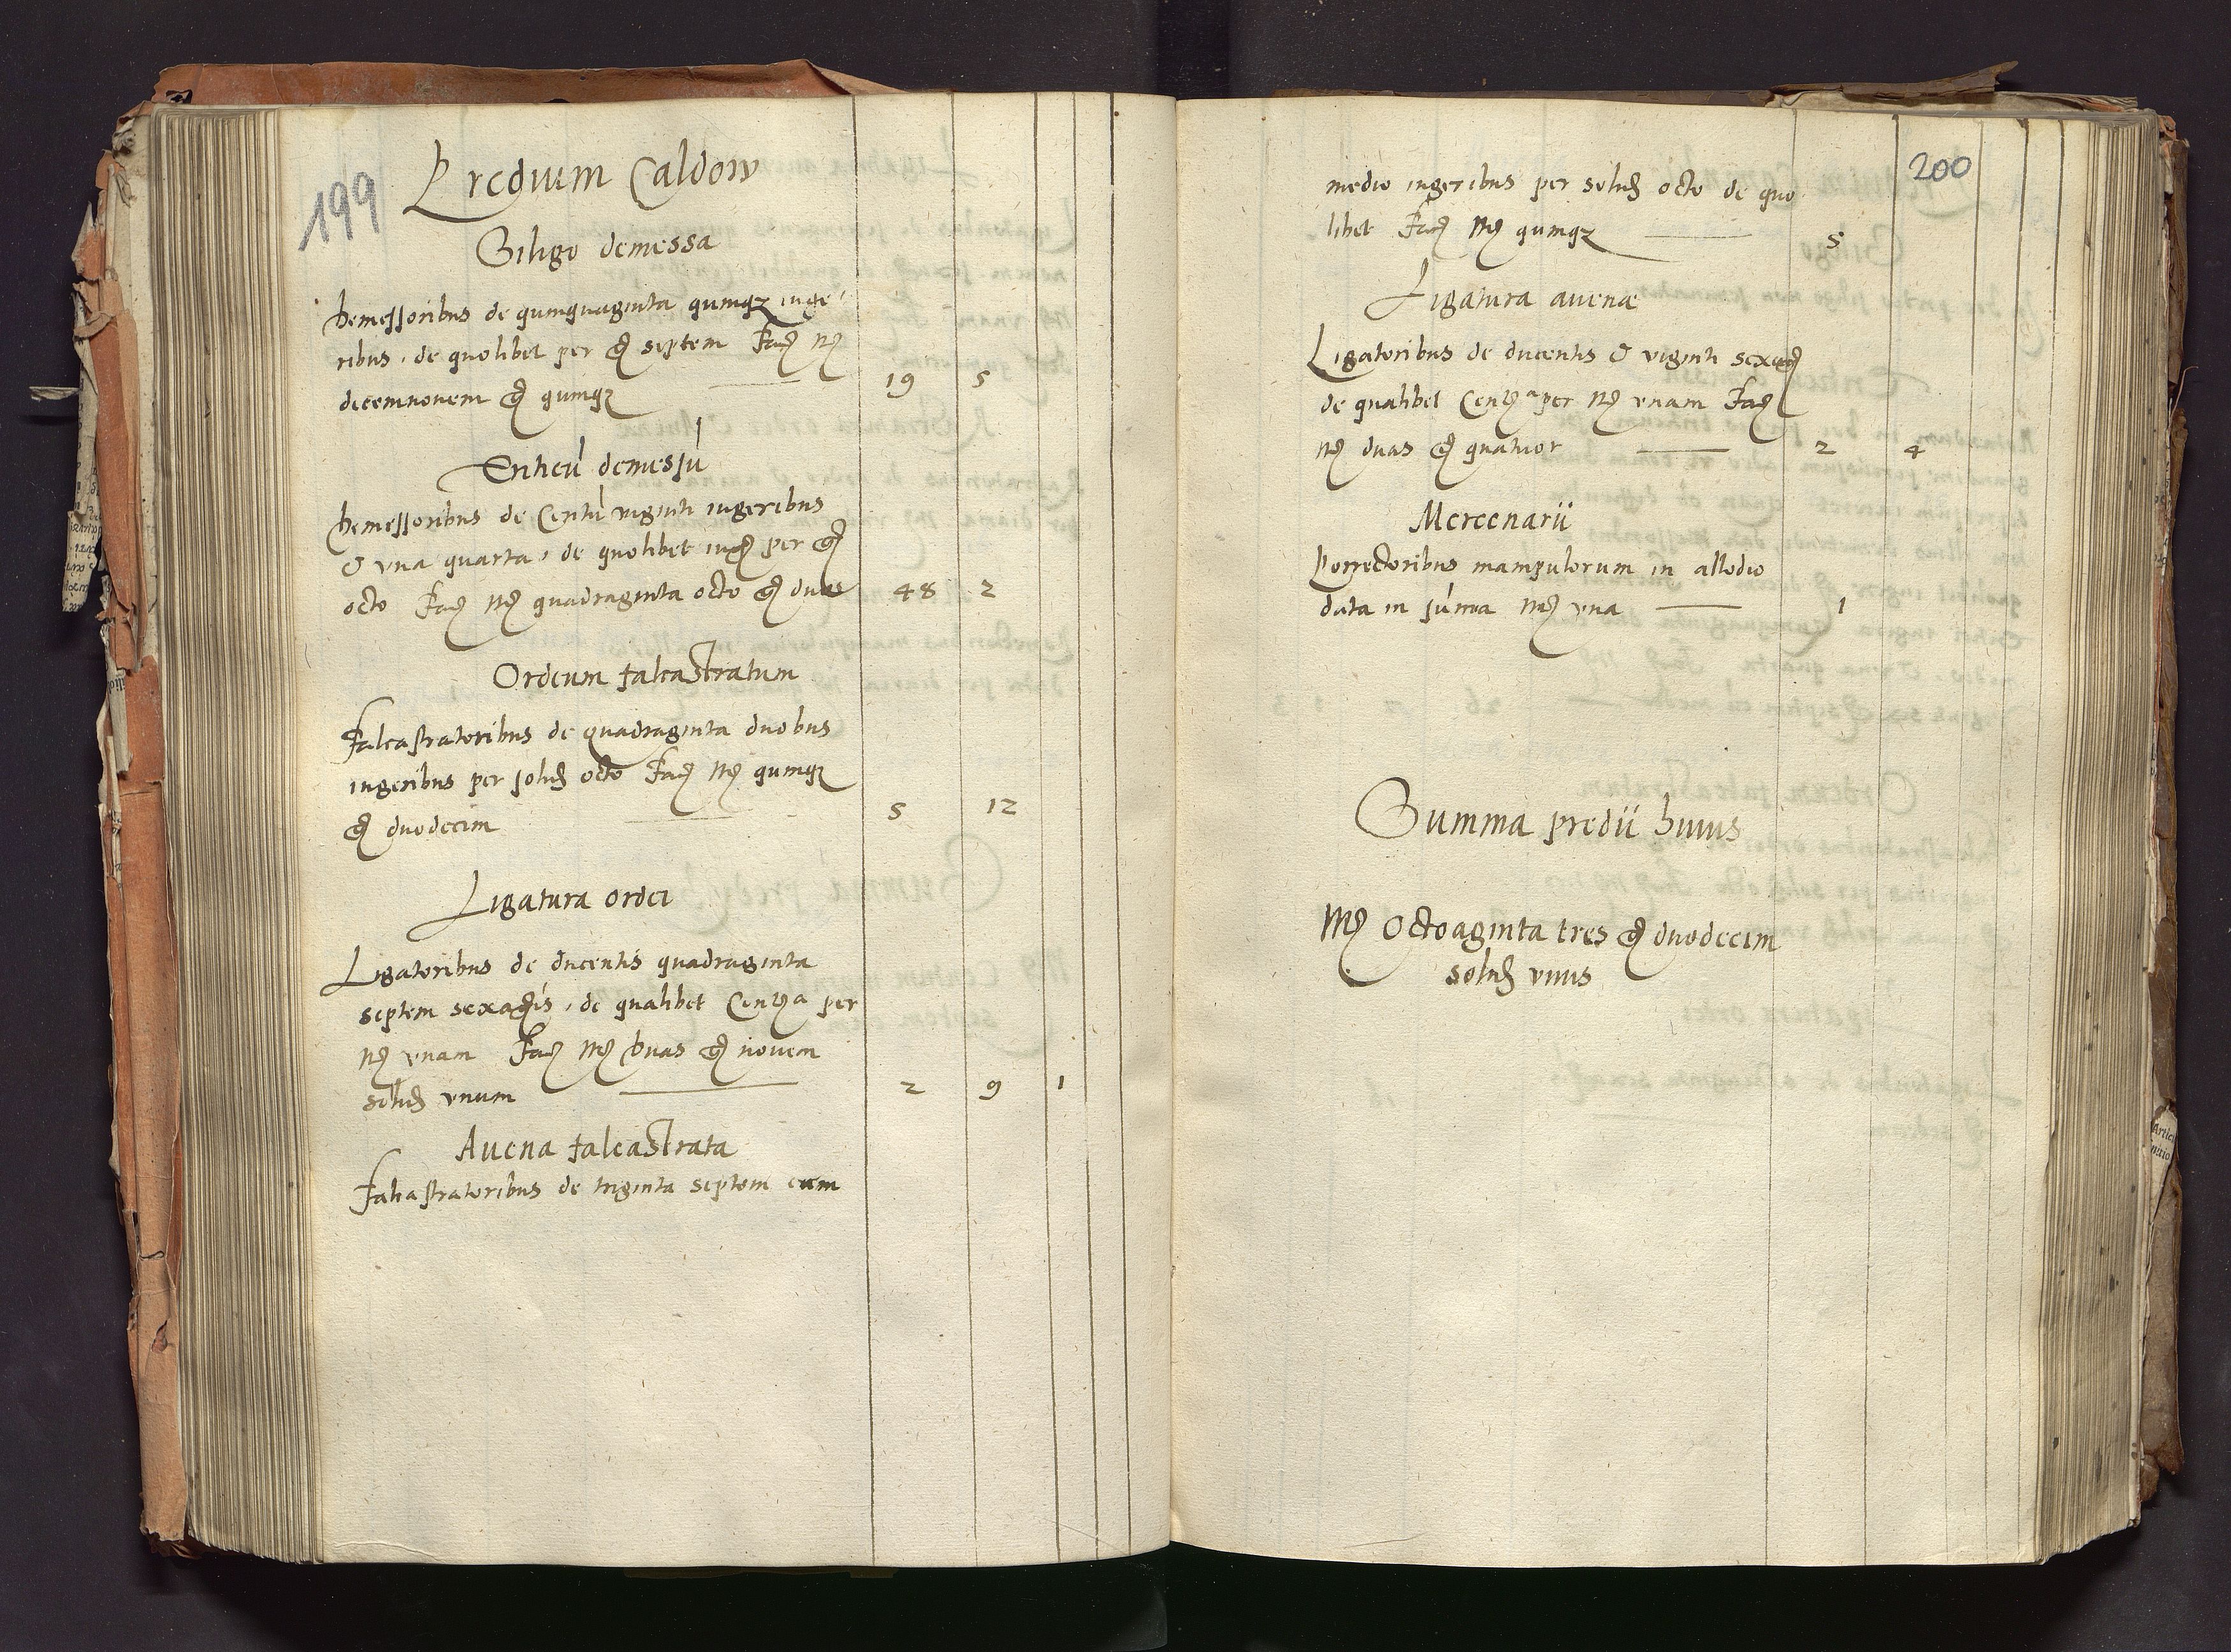 199
Predium Caldow
Siligo demessa
Demessoribus de quinquaginta quinqȝ iuge/
ribus, de quolibet per gr septem Fac mr
decemnovem gr quinqȝ — 19 5
Triticū demessū
Demessoribus de Centū viginti iugeribus
& vna quarta, de quolibet iug per gr
octo Fac Mr quadraginta octo gr duos 48 2
Ordeum falcastratum
Falcastratoribus de quadraginta duobus
iugeribus per solid octo Fac Mr quinqȝ
gr duodecim — 5 12
Ligatura ordei
Ligatoribus de ducentis quadraginta
septem sexagis, de qualibet Centa per
mr vnam Fac Mr duas gr novem
solid vnum — 2 9 1
Avena falcastrata
Falcastratoribus de triginta septem cum
200
medio iugeribus per solid octo de quo
libet Fac Mr quinqȝ — 5
Ligatura avenæ
Ligatoribus de ducentis & viginti sexag
de qualibet Centa per Mr vnam Fac
Mr duas gr quatuor — 2 4
Mercenarii
Porrectoribus manipulorum in allodio
data in sūma Mr vna — 1
Summa predii huius
Mr Octoaginta tres gr duodecim
solid vnus